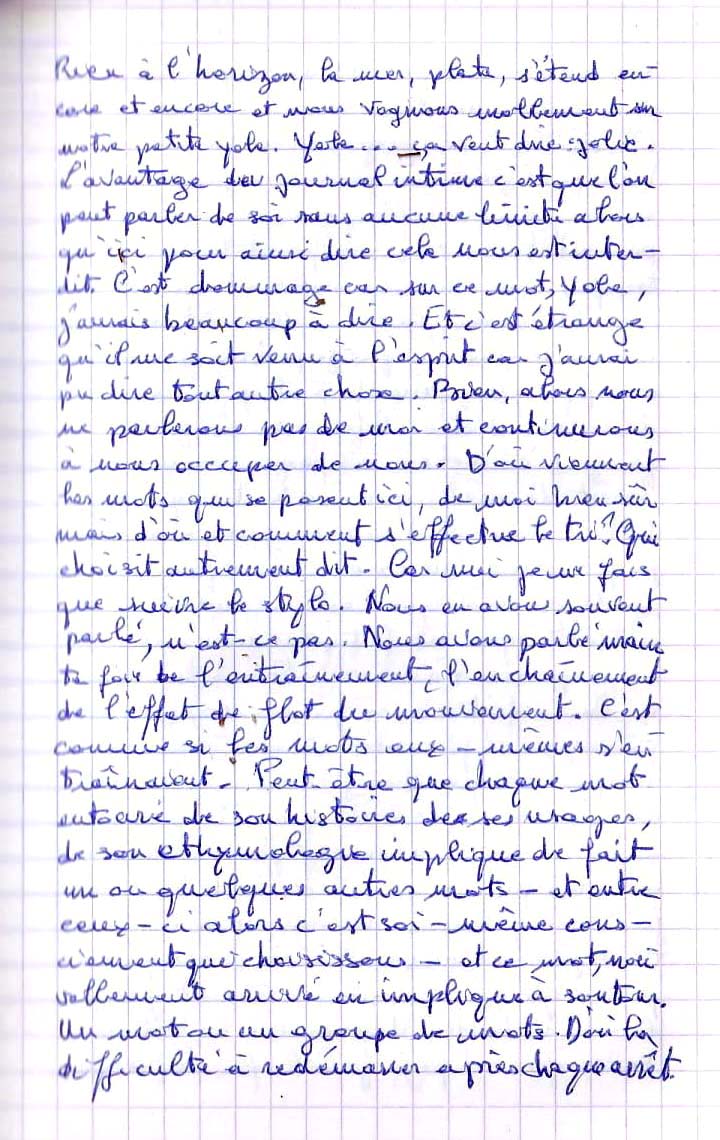 Rien à l'horizon, la mer, plate, s'étend en-
core et encore et nous voguons mollement sur
notre petite yole. Yole... ça veut dire : jolie.
L'avantage du journal intime c'est que l'on
peut parler de soi sans aucune limite alors
qu'ici pour ainsi dire cela nous est inter-
dit. C'est dommage car sur ce mot, yole,
j'aurais beaucoup à dire. Et c'est étrange
qu'il me soit venu à l'esprit car j'aurai
pu dire tout autre chose. Bien, alors nous
ne parlerons pas de moi et continuerons
à nous occuper de nous. D'où viennent
les mots qui se posent ici, de moi bien sûr
mais d'où et comment s'effectue le tri? Qui
choisit autrement dit. Car moi je ne fais
que suivre le stylo. Nous en avons souvent
parlé, n'est-ce pas. Nous avons parlé main
te fois de l'entraînement, l'enchaînement
de l'effet de flot du mouvement. C'est
comme si les mots eux-mêmes s'en
traînaient. Peut-être que chaque mot
entouré de son histoire, de ses usages,
de son ethymologie implique de fait
un ou quelques autres mots - et entre
ceux-ci alors c'est soi-même cons-
ciemment qui choisissons - et ce mot, nou
vellement arrivé en implique à son tour.
Un mot ou un groupe de mots. D'où la
difficulté à redémarrer après chaque arrêt.